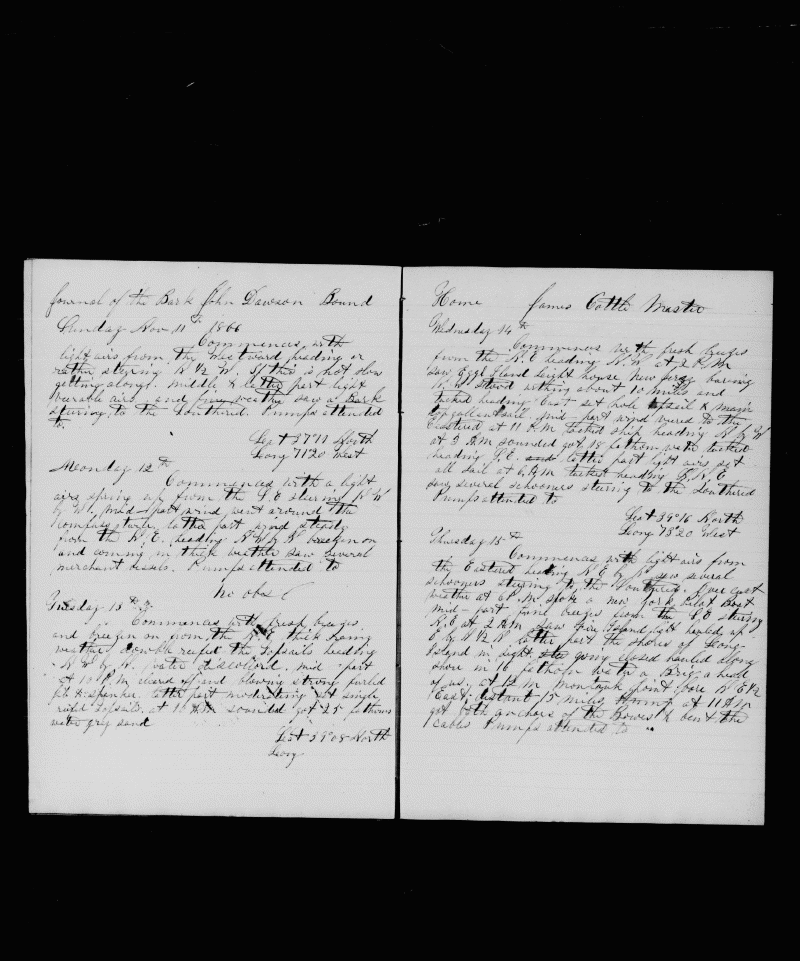 Journal of the Bark John Dawson Bound
Sunday Nov 11th 1866
Commences with
light airs from the Westward heading or
rather steering N ½ W. If this is not slow
getting along. Middle & latter part light
varable airs and fine weather saw a Bark
steering to the Southerd. Pumps attended
to
Lat 37°11 North
Long 71°20 West
Monday 12th
Commences with a light
airs spring up from the S.E steering N W
by W. mid-part wind went around the
compass twice latter part wind steady
from the N.E. heading N.W by N breezen on
and coming in thick weather saw several
merchant vessels. Pumps attended to
no obs
Tuesday 13th
Commences with fresh breezes
and breezen on from the N.E thick raing
weather double reefed the Topsails heading
N W by N. water discolord. mid-part
at 10 P.M cleard of and blowing strong furled
jib & spanker. latter part modrating set single
reefd Topsails, at 10 A.M sounded got 25 fathoms
water grey sand
Lat 39°08 North
Long
Home James Cottle Master
Wednesday 14th
Commences with fresh breezes
from the N.E heading N.N.W at 2 P.M
saw Egg Iland Light house New Jersy baring
N.W stood within about 10 miles and
tacked heading East set hole topsail & main
topgallantsail, mid-part wind vered to the
Eastered at 11 P.M tacked ship heading N by W
at 3 A.M sounded got 18 fathom water tacked
heading S.E. latter part light airs set
all sail at 6 A.M tacked heading N.N.E
saw several schooners steering to the Southered
Pumps attended to
Lat 39°16 North
Long 73°20 West
Thursday 15th
Commences with light airs from
the Eastered heading N.E by N saw several
schooners steering to the Southered. Over cast
weather at 6 P.M. spoke a New york Pilot Boat
mid-part fine breezes from the S.E steering
N.E at 2 A.M saw Fire Island light hauled up
E by N ½ N. latter part the shores of Long-
Island in sight, going closed hauled along
shore in 16 fathom water a Brig a head
of us, at 12 M montauk point bore N E ½
East distant 15 miles at 11 A.M
got both anchors of the Bowes & bent the
cables Pumps attended to